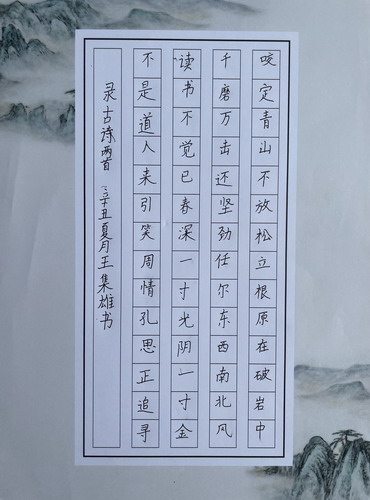 咬定青山不放松立根原在破岩中
千磨万击还坚劲任尔东西南北风
读书不觉已春深一寸光阴一寸金
不是道人来引笑周情孔思正追寻
录古诗两首 辛丑夏月王集雄书